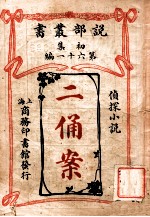 説部叢書
初集
第六十一編
偵探小説
二俑案
上海商務印書館發行